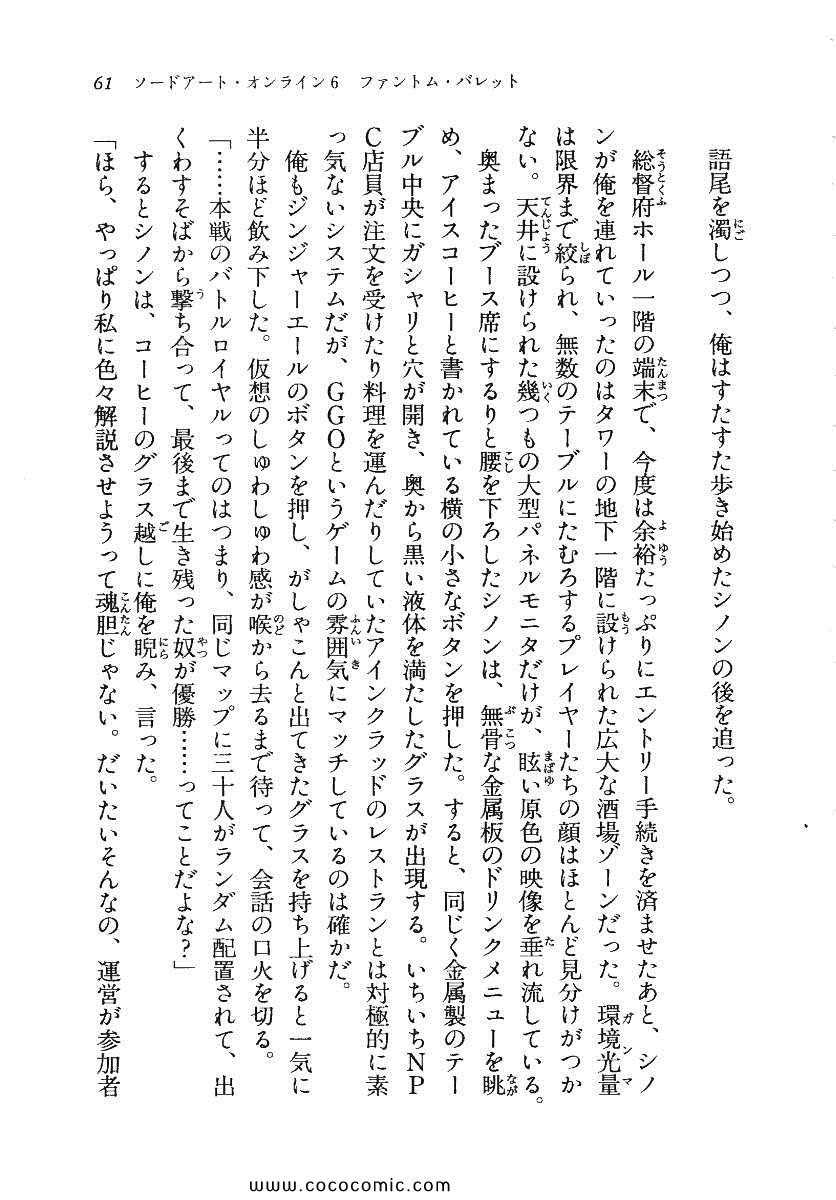 61　ソードアート・オンライン6　ファントム・バレット
語尾を濁しつつ、俺はすたすた歩き始めたシノンの後を追った。
総督府ホール一階の端末で、今度は余裕たっぷりにエントリー手続きを済ませたあと、シノ
ンが俺を連れていったのはタワーの地下一階に設けられた広大な酒場ゾーンだった。環境光量
は限界まで絞られ、無数のテーブルにたむろするプレイヤーたちの顔はほとんど見分けがつか
ない。天井に設けられた幾つもの大型パネルモニタだけが、眩い原色の映像を垂れ流している。
奥まったブース席にするりと腰を下ろしたシノンは、無骨な金属板のドリンクメニューを眺
め、アイスコーヒーと書かれている横の小さなボタンを押した。すると、同じく金属製のテー
ブル中央にガシャリと穴が開き、奥から黒い液体を満たしたグラスが出現する。いちいちNP
C店員が注文を受けたり料理を運んだりしていたアインクラッドのレストランとは対極的に素
っ気ないシステムだが、GGOというゲームの雰囲気にマッチしているのは確かだ。
俺もジンジャーエールのボタンを押し、がしゃこんと出てきたグラスを持ち上げると一気に
半分ほど飲み下した。仮想のしゅわしゅわ感が喉から去るまで待って、会話の口火を切る。
「……本戦のバトルロイヤルってのはつまり、同じマップに三十人がランダム配置されて、出
くわすそばから撃ち合って、最後まで生き残った奴が優勝……ってことだよな?」
するとシノンは、コーヒーのグラス越しに俺を睨み、言った。
「ほら、やっぱり私に色々解説させようって魂胆じゃない。だいたいそんなの、運営が参加者
www.cococomic.com